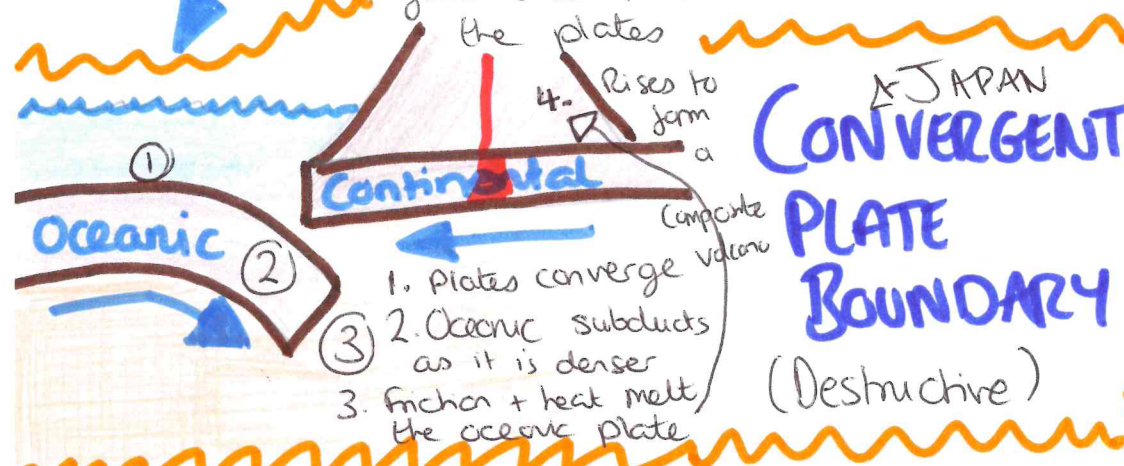 the plates
4. Rises to
form
a
Composite
volcano
JAPAN
CONVERGENT
PLATE
BOUNDARY
(Destructive)
1
Continental
Oceanic
2
3
1. Plates converge
2. Oceanic subducts
as it is denser
3. Friction + heat melt
the oceanic plate